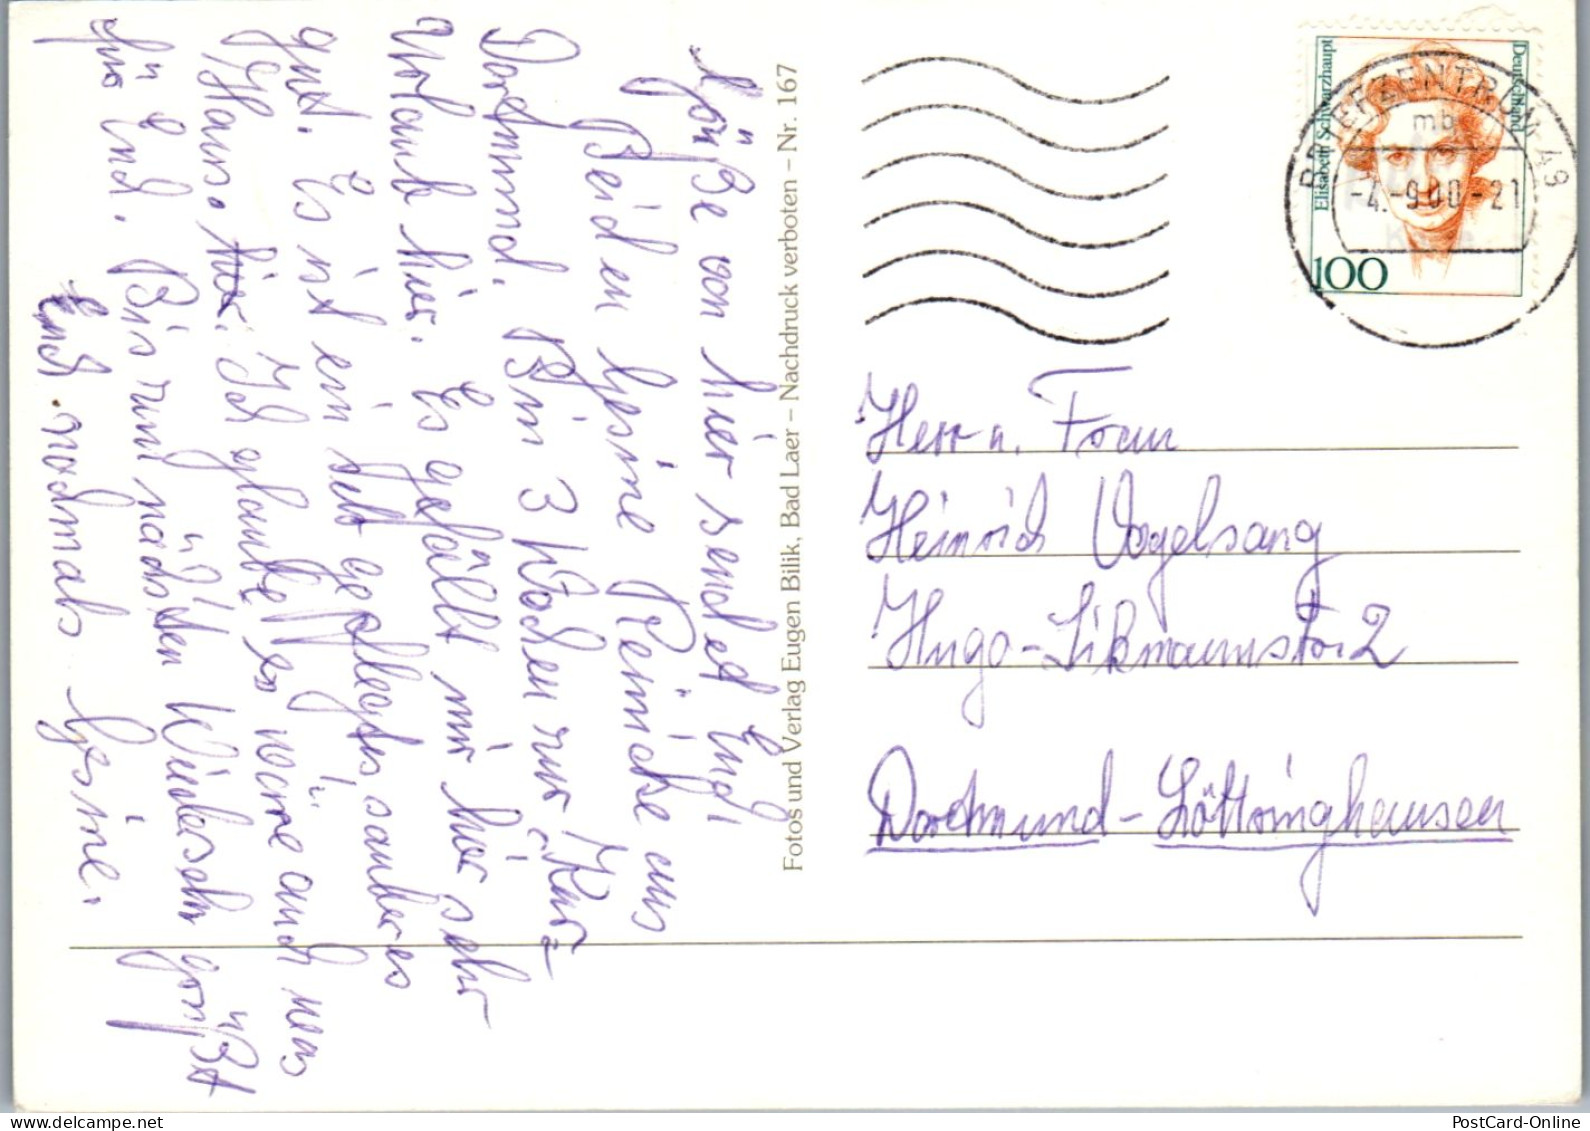 Grüße von hier sendet Euch
Beiden Gesine Reinicke aus
Dortmund. Bin 3 Wochen zur Kur=
Urlaub hier. Es gefällt mir hier sehr
gut. Es ist ein sehr gepflegtes, sauberes
Haus. hier. Ich glaube es wäre auch was
für Euch. Bis zum nächsten Wiedersehn grüßt
Euch nochmals Gesine.
Fotos und Verlag Eugen Bilik, Bad Laer – Nachdruck verboten – Nr. 167
Deutschland
Elisabeth Schwarzhaupt
100
BRIEFZENTRUM 49
mb
-4.-9.00-21
Herr u. Frau
Heinrich Vogelsang
Hugo-Sikmannstr. 2
Dortmund-Löttringhausen
PostCard-Online